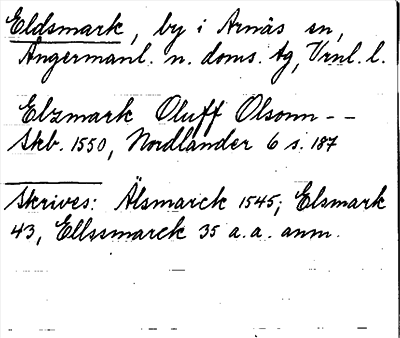 Eldsmark, by i Arnäs sn,
Ångermanl. n. doms. tg, Vrnl. l.
Elzmark Oluff Olsonn - -
Skb. 1550, Nordlander 6 s. 187
Skrives: Älsmarck 1545; Elsmark
43, Ellssmarck 35 a. a. anm.